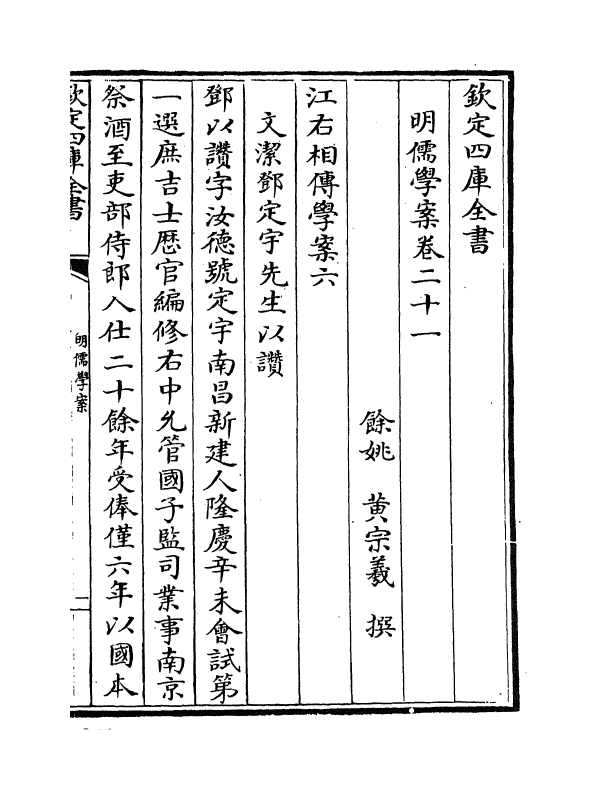 欽定四庫全書
明儒學案卷二十一
餘姚 黄宗羲 撰
江右相傳學案六
文潔鄧定宇先生以讚
鄧以讚字汝德號定宇南昌新建人隆慶辛未會試第
一選庶吉士歷官編修右中允管國子監司業事南京
祭酒至吏部侍郎入仕二十餘年受俸僅六年以國本
欽定四庫全書
明儒學案